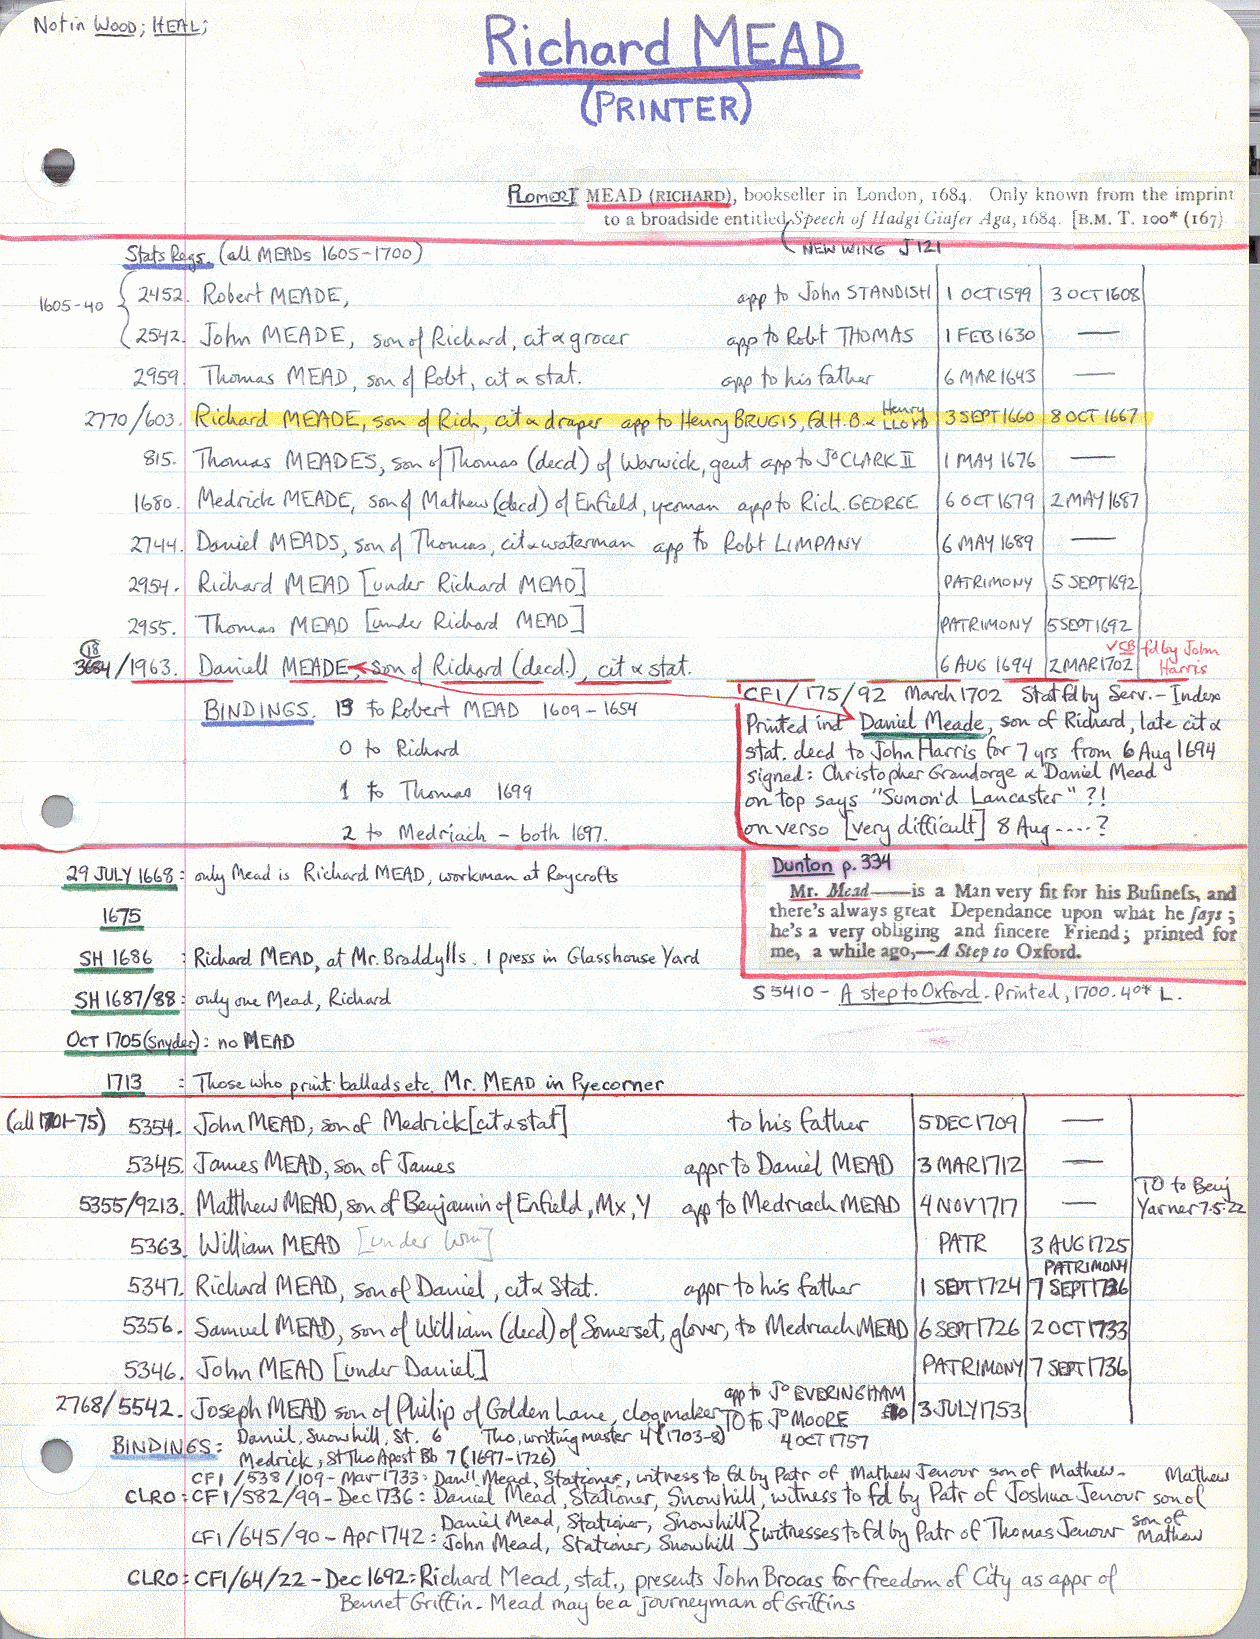 Not in WOOD; HEAL;
Richard MEAD
(PRINTER)
PLOMER I MEAD (RICHARD), bookseller in London, 1684. Only known from the imprint
to a broadside entitled Speech of Hadgi Giafer Aga, 1684. [B.M. T. 100* (167)
NEW WING J121
Stats Regs. (all MEADs 1605-1700)
1605-40
2452. Robert MEADE, app to John STANDISH 1 OCT 1599 3 OCT 1608
2542. John MEADE, son of Richard, cit & grocer app to Robt THOMAS 1 FEB 1630 —
2959. Thomas MEAD, son of Robt, cit & stat. app to his father 6 MAR 1643 —
2770/603. Richard MEADE, son of Rich, cit & draper app to Henry BRUGIS, fd H.B. & Henry LLOYD 3 SEPT 1660 8 OCT 1667
815. Thomas MEADES, son of Thomas (decd) of Warwick, gent app to Jo CLARK II 1 MAY 1676 —
1680. Medrick MEADE, son of Mathew (decd) of Enfield, yeoman app to Rich. GEORGE 6 OCT 1679 2 MAY 1687
2744. Daniel MEADS, son of Thomas, cit & waterman app to Robt LIMPANY 6 MAY 1689 —
2954. Richard MEAD [under Richard MEAD] PATRIMONY 5 SEPT 1692
2955. Thomas MEAD [under Richard MEAD] PATRIMONY 5 SEPT 1692
18
/1963. Daniell MEADE, son of Richard (decd), cit & stat. 6 AUG 1694 2 MAR 1702 ✓CB fd by John Harris
BINDINGS. 13 to Robert MEAD 1609-1654
0 to Richard
1 to Thomas 1699
2 to Medriach - both 1697.
CF1/175/92 March 1702 Stat fd by Serv. - Index
Printed ind Daniel Meade, son of Richard, late cit &
stat. decd to John Harris for 7 yrs from 6 Aug 1694
signed: Christopher Grandorge & Daniel Mead
on top says "Sumon'd Lancaster" ?!
on verso [very difficult] 8 Aug ----?
29 JULY 1668: only Mead is Richard MEAD, workman at Roycrofts
1675
SH 1686 : Richard MEAD, at Mr. Braddylls. 1 press in Glasshouse Yard
SH 1687/88: only one Mead, Richard
OCT 1705 (Snyder): no MEAD
1713 : Those who print ballads etc. Mr. MEAD in Pyecorner
Dunton p. 334
Mr. Mead——is a Man very fit for his Busineſs, and
there's always great Dependance upon what he ſays;
he's a very obliging and ſincere Friend; printed for
me, a while ago,—A Step to Oxford.
S5410 - A step to Oxford. Printed, 1700. 4o* L.
(all 1701-75) 5354. John MEAD, son of Medrick [cit & stat] to his father 5 DEC 1709 —
5345. James MEAD, son of James appr to Daniel MEAD 3 MAR 1712 —
5355/9213. Matthew MEAD, son of Benjamin of Enfield, Mx, Y app to Medriach MEAD 4 NOV 1717 — TO to Benj Yarner 7.5.22
5363. William MEAD [under Wm] PATR 3 AUG 1725
5347. Richard MEAD, son of Daniel, cit & Stat. appr to his father 1 SEPT 1724 PATRIMONY 7 SEPT 1736
5356. Samuel MEAD, son of William (decd) of Somerset, glover, to Medriach MEAD 6 SEPT 1726 2 OCT 1733
5346. John MEAD [under Daniel] PATRIMONY 7 SEPT 1736
2768/5542. Joseph MEAD son of Philip of Golden Lane, clogmaker app to Jo EVERINGHAM £10 3 JULY 1753
TO to Jo MOORE
4 OCT 1757
BINDINGS: Daniel, Snowhill, St. 6 Tho, writing master 4 (1703-8)
Medrick, St Tho Apost Bb 7 (1697-1726)
CF1/538/109 - Mar 1733: Danll Mead, Stationer, witness to fd by Patr of Mathew Jenour son of Mathew.
CLRO: CF1/582/99 - Dec 1736: Daniel Mead, Stationer, Snowhill, witness to fd by Patr of Joshua Jenour son of Mathew
CF1/645/90 - Apr 1742: Daniel Mead, Stationer, Snowhill
John Mead, Stationer, Snowhill } witnesses to fd by Patr of Thomas Jenour son of Mathew
CLRO: CF1/64/22 - Dec 1692: Richard Mead, stat., presents John Brocas for freedom of City as appr of
Bennet Griffin. Mead may be a journeyman of Griffins